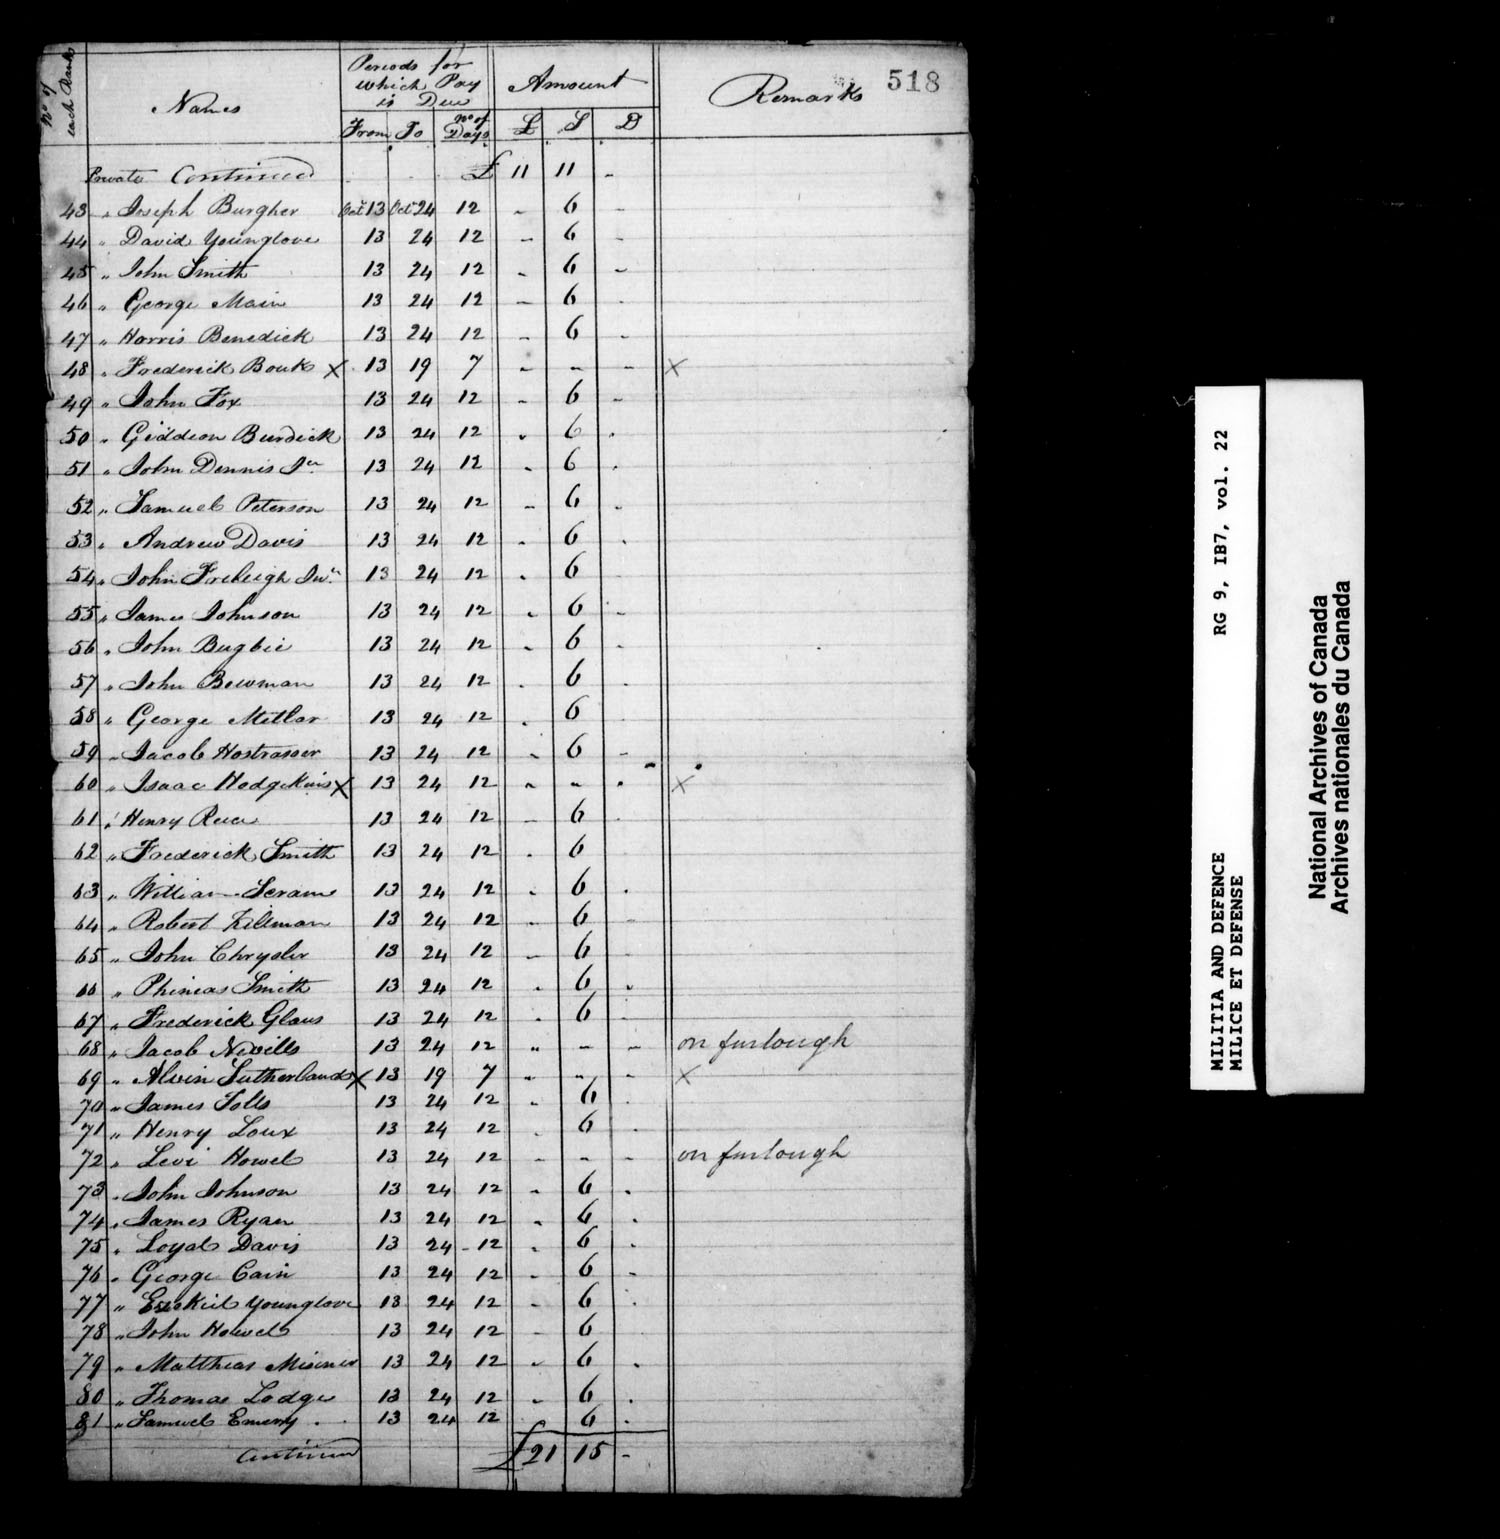 518
No of each Rank Names Periods for which Pay is Due Amount Remarks
From To No of Days £ S D
Private Continued £ 11 11 -
43 " Joseph Burgher Octr 13 Octr 24 12 - 6 -
44 " David Younglove 13 24 12 - 6 -
45 " John Smith 13 24 12 - 6 -
46 " George Main 13 24 12 - 6 -
47 " Harris Benedick 13 24 12 - 6 -
48 " Frederick Bouk X 13 19 7 - - - X
49 " John Fox 13 24 12 - 6 -
50 " Giddeon Burdick 13 24 12 - 6 -
51 " John Dennis Jr 13 24 12 - 6 -
52 " Samuel Peterson 13 24 12 - 6 -
53 " Andrew Davis 13 24 12 - 6 -
54 " John Freleigh Junr 13 24 12 - 6 -
55 " James Johnson 13 24 12 - 6 -
56 " John Bugbie 13 24 12 - 6 -
57 " John Bowman 13 24 12 - 6 -
58 " George Mitlar 13 24 12 - 6 -
59 " Jacob Hostrasser 13 24 12 - 6 -
60 " Isaac Hodgkins X 13 24 12 - - - X
61 " Henry 13 24 12 - 6 -
62 " Frederick Smith 13 24 12 - 6
63 " William Scram 13 24 12 - 6 -
64 " Robert Kilman 13 24 12 - 6 -
65 " John Chrysler 13 24 12 - 6 -
66 " Phineas Smith 13 24 12 - 6 -
67 " Frederick Glaus 13 24 12 - 6 -
68 " Jacob Nevills 13 24 12 " - - on furlough
69 " Alvin Sutherland X 13 19 7 - - - X
70 " James Tolls 13 24 12 - 6 -
71 " Henry Loux 13 24 12 - 6 -
72 " Levi Howel 13 24 12 - - - on furlough
73 " John Johnson 13 24 12 - 6 -
74 " James Ryan 13 24 12 - 6 -
75 " Loyal Davis 13 24 12 - 6 -
76 " George Cain 13 24 12 - 6 -
77 " Ezekiel Younglove 13 24 12 - 6 -
78 " John Howel 13 24 12 - 6 -
79 " Matthias Misener 13 24 12 - 6 -
80 " Thomas Lodge 13 24 12 - 6 -
81 " Samuel Emery 13 24 12 6 -
Continued £ 21 15 -
MILITIA AND DEFENCE RG 9, IB7, vol. 22
MILICE ET DEFENSE
National Archives of Canada
Archives nationales du Canada